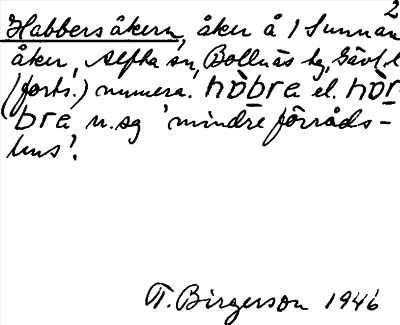 2
Habbersåkern, åker å 1 Sunnan
åker, Alfta sn, Bollnäs tg, Gävl. l
(forts.) numera. hòbra el. hòr-
bra n. sg 'mindre förråds-
hus'.
T. Birgerson 1946